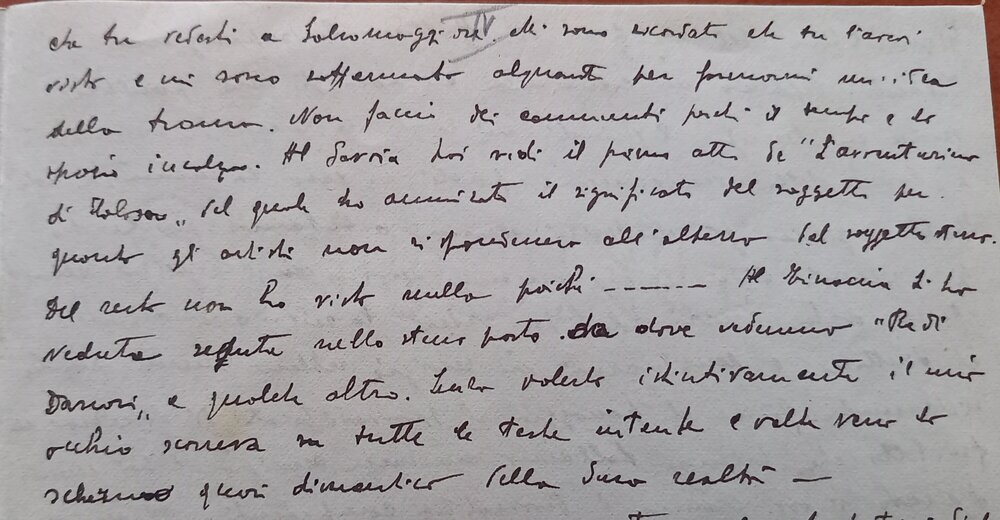 che tu vedesti a Salsomaggiore. Mi sono ricordato che tu l'avevi
IV
visto e mi sono soffermato alquanto per formarmi un'idea
della trama. Non faccio dei commenti perchè il tempo e lo
spazio incalza. Al Savoia poi vidi il primo atto de "L'avventuriero
di" del quale ho ammirato il significato del soggetto per
quanto gli artisti non rispondevano all'altezza del soggetto stesso.
Del resto non ho visto nulla poichè ------ Al ti ho
veduta seduta nello stesso posto da dove vedemmo "Re di
Danari" e qualche altro. Senza volerlo istintivamente il mio
occhio scorreva su tutte le teste intente e volte verso lo
schermo quasi dimentico della dura realtà —